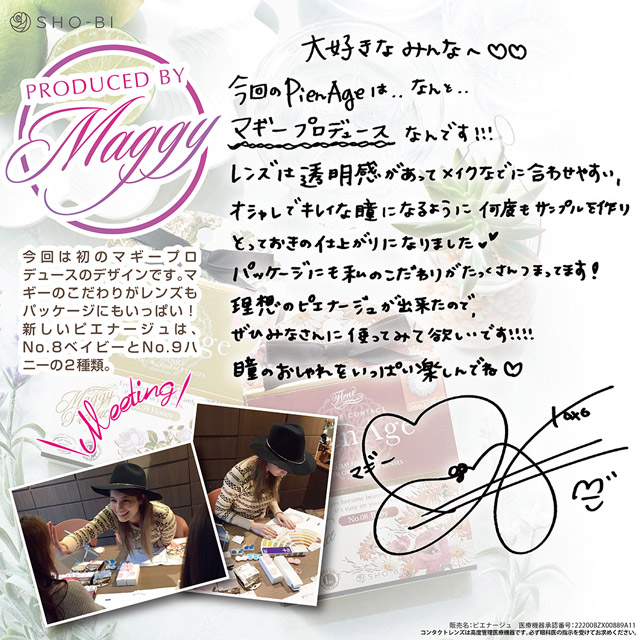 SHO-BI
PRODUCED BY
Maggy
大好きなみんなへ♡♡
今回のPienAgeは..なんと..
マギープロデュース なんです!!!
レンズは透明感があってメイクなどに合わせやすい,
オシャレでキレイな瞳になるように何度もサンプルを作り
とっておきの仕上がりになりました♥♥
パッケージにも私のこだわりがたっくさんつまってます!
理想のピエナージュが出来たので,
ぜひみなさんに使ってみて欲しいです!!!!
瞳のおしゃれをいっぱい楽しんでね♡
今回は初のマギープロ
デュースのデザインです。マ
ギーのこだわりがレンズも
パッケージにもいっぱい!
新しいピエナージュは、
No.8ベイビーとNo.9ハ
ニーの2種類。
Meeting!
マギー
xoxo
SHO-BI
販売名:ピエナージュ 医療機器承認番号:22200BZX00889A11
コンタクトレンズは高度管理医療機器です。必ず眼科医の指示を受けてお求めください。